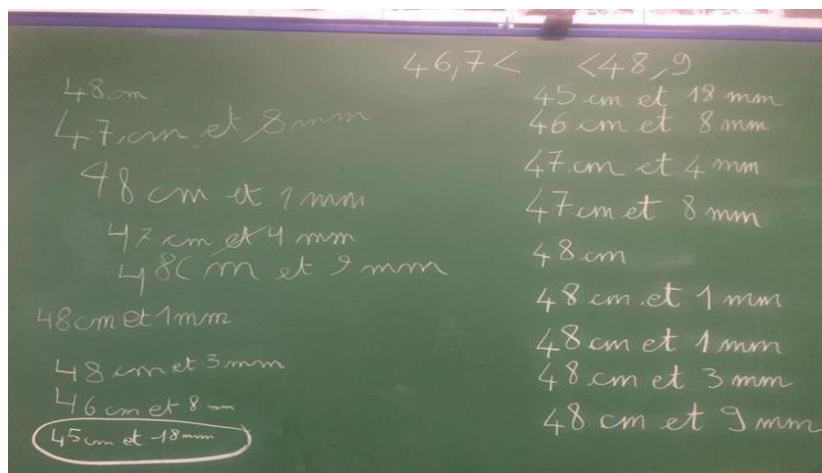 46,7 < < 48,9
48 cm
47 cm et 8 mm
48 cm et 1 mm
47 cm et 4 mm
48 cm et 9 mm
48 cm et 1 mm
48 cm et 3 mm
46 cm et 8 mm
45 cm et 18 mm
45 cm et 18 mm
46 cm et 8 mm
47 cm et 4 mm
47 cm et 8 mm
48 cm
48 cm et 1 mm
48 cm et 1 mm
48 cm et 3 mm
48 cm et 9 mm